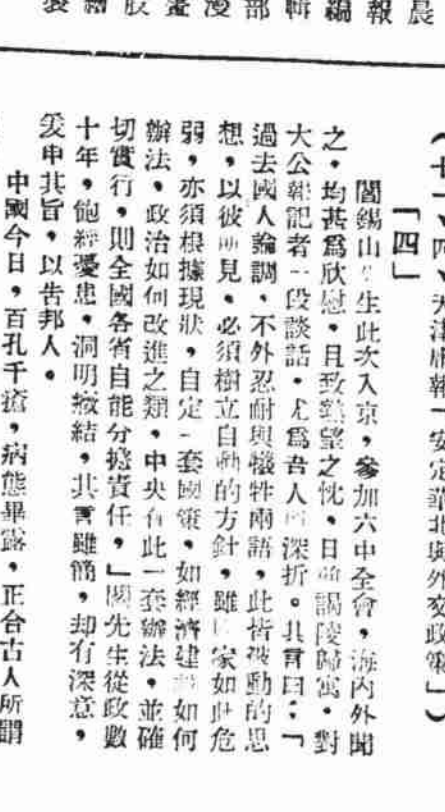 晨報編輯部漫畫股繪製
（十一、四、天津庸報「安定華北與外交政策」）
「四」
閻錫山先生此次入京，參加六中全會，海內外聞
之，均甚爲欣慰，且致望之忱，日前謁陵歸寓，對
大公報記者一段談話，尤爲吾人所深折。其言曰：「
過去國人論調，不外忍耐與犧牲兩語，此皆被動的思
想，以彼所見，必須樹立自動的方針，雖國家如此危
弱，亦須根據現狀，自定一套國策，如經濟建設如何
辦法，政治如何改進之類，中央有此一套辦法，並確
切實行，則全國各省自能分擔責任，」閻先生從政數
十年，飽經憂患，洞明癥結，其言雖簡，却有深意，
爰申其旨，以告邦人。
中國今日，百孔千瘡，病態畢露，正合古人所謂